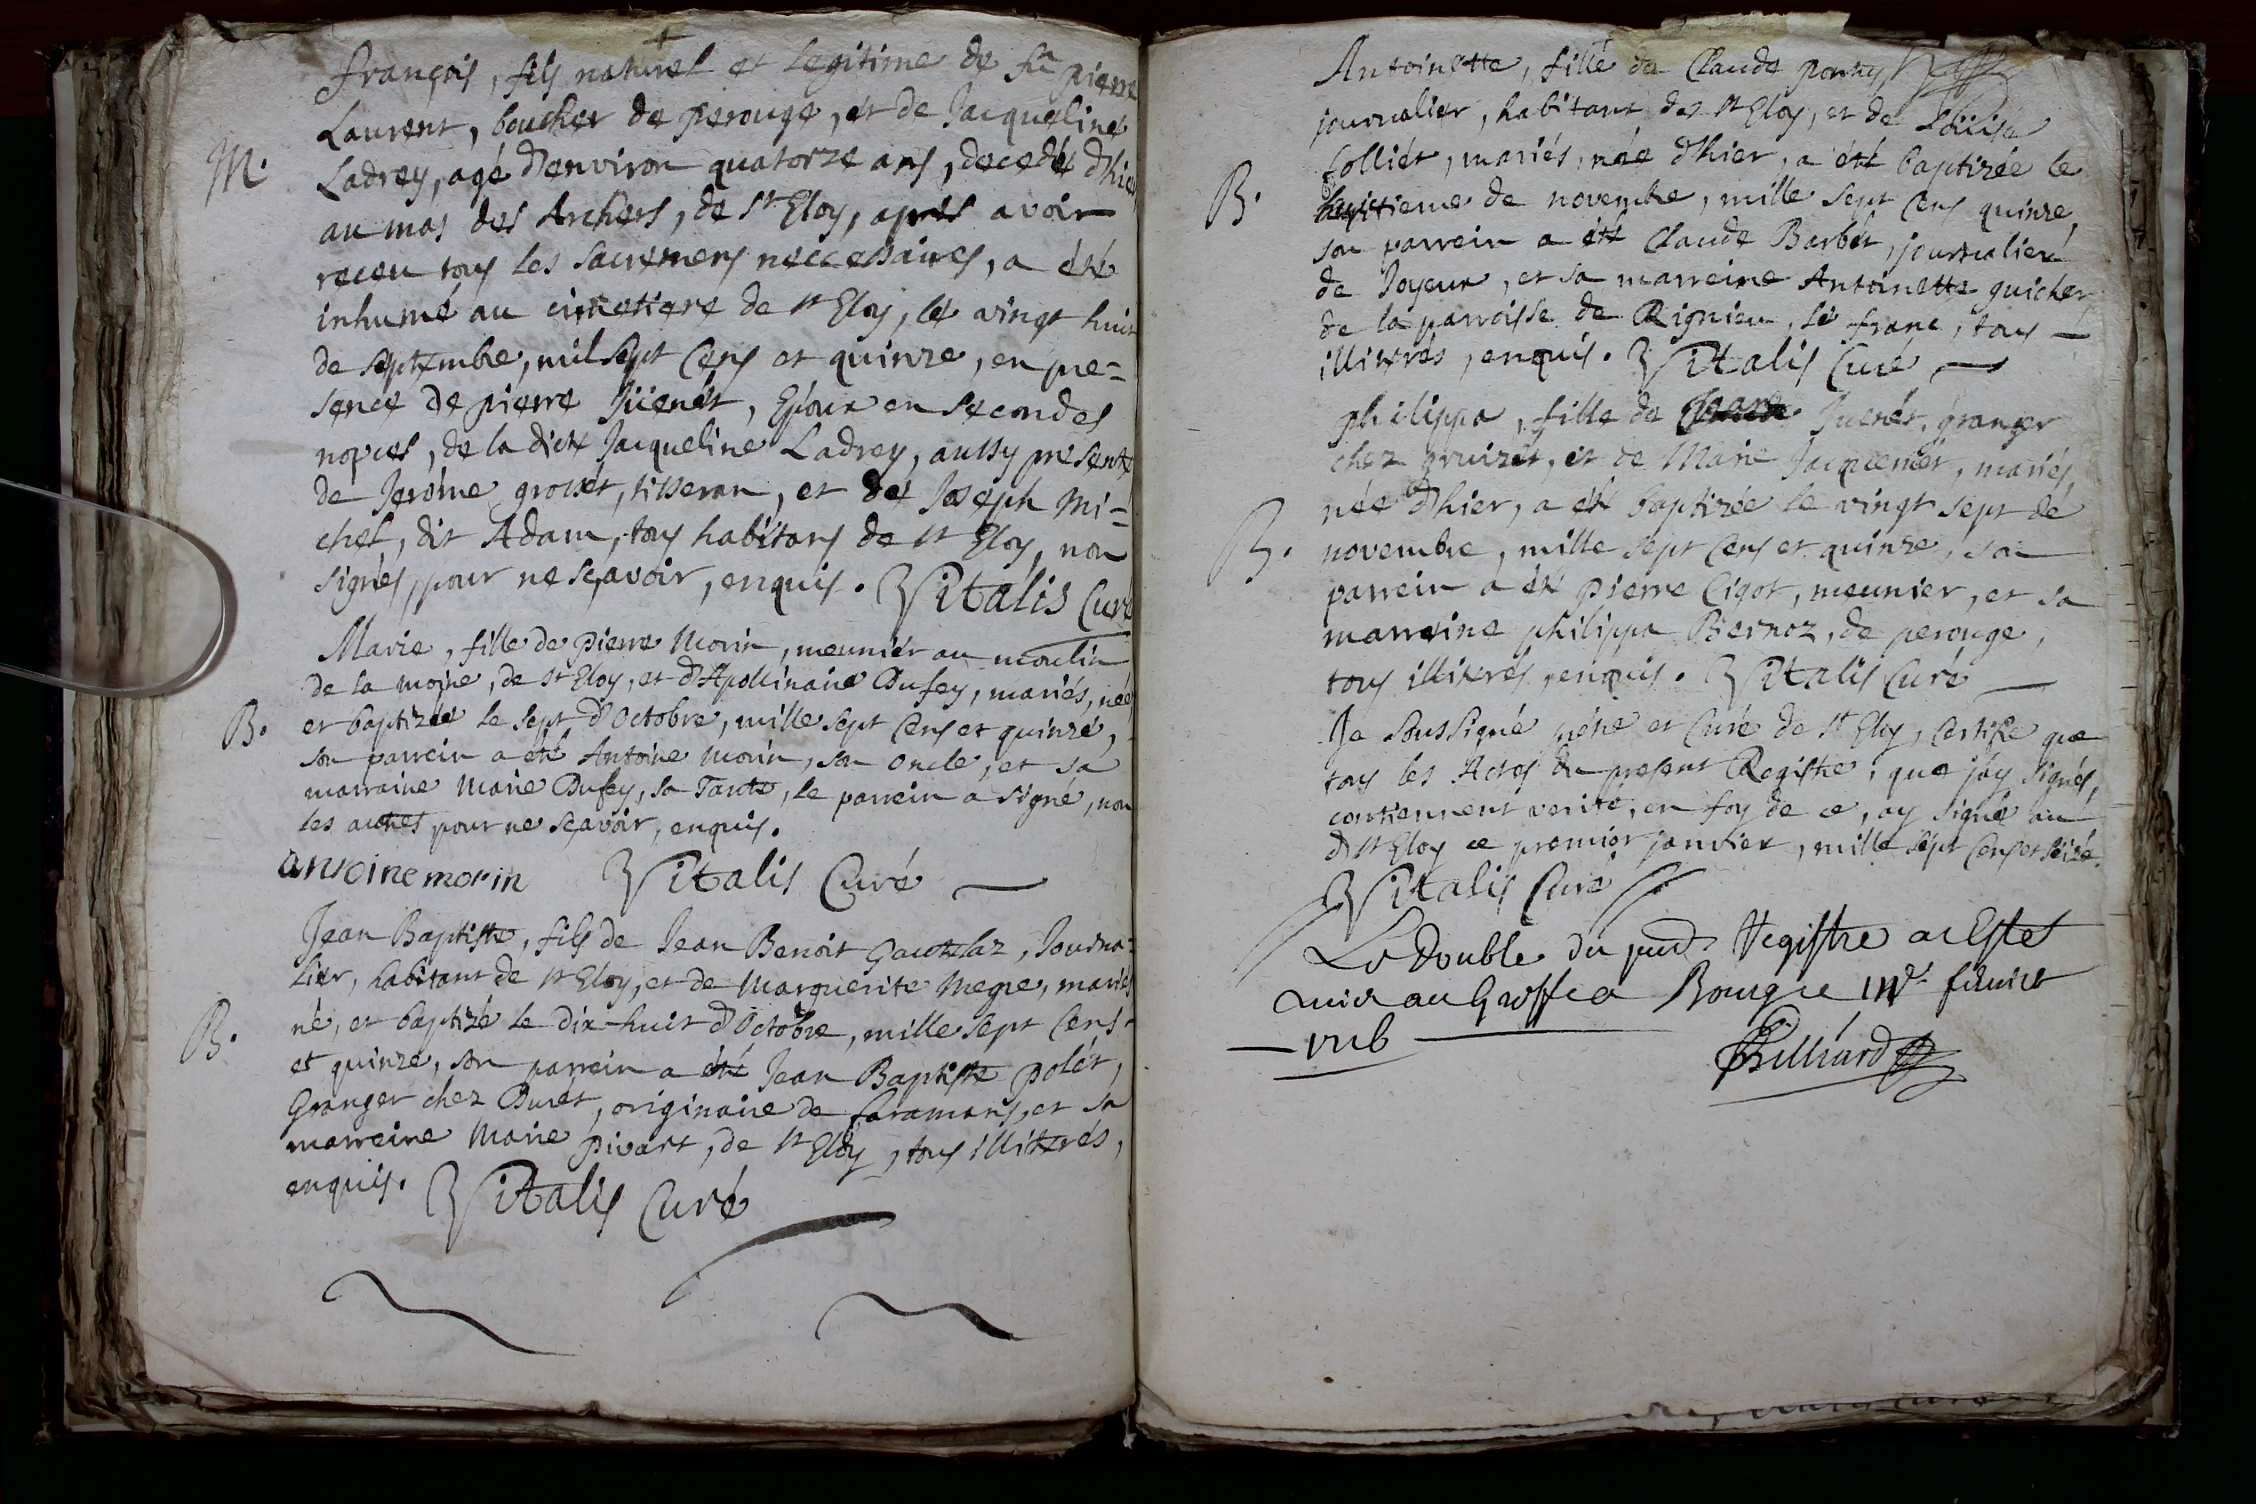 françois, fils naturel et legitime de fû pierre
Laurent, boucher de perouge, et de Jacqueline
M.
Ladrey, agé d'environ quatorze ans, decedét d'hier
au mas des Archers, de st Eloy, après avoir
receu tous les sacremens neccessaires, a été
inhumé au cimetiere de st Eloy, le vingt huit
de septembre, mil sept cens et quinze, en pre=
sence de pierre Jüenét, Epoux en secondes
nopces, de la dicte Jacqueline Ladrey, aussy presente
de Jerôme grossét, tisseran, et de Joseph Mi=
chel, dit Adam, tous habitans de st Eloy, non
signés, pour ne sçavoir, enquis. Vitalis Curé
Marie, fille de pierre Morin, meuniér au moulin
de la moine, de st Eloy, et d'Apollinaire Dufey, mariés, née
B.
et baptizée le sept d'Octobre, mille sept cens et quinze,
son parrein a été Antoine Morin, son oncle, et sa
marraine Marie Dufey, sa Tante, le parrein a signé, non
les autres pour ne sçavoir, enquis.
antoine morin Vitalis Curé
Jean Baptiste, fils de Jean Benoit Gautelaz, Journa=
lier, habitant de st Eloy, et de Marguerite Megre, mariés
B.
né, et baptizé le dix-huit d'Octobre, mille sept cens
et quinze, son parrein a été Jean Baptiste polét,
Granger chez Durét, originaire de faramans, et sa
marreine Marie pivart, de st Eloy, tous illiterés,
enquis. Vitalis Curé
Antoinette, fille de Claude
journalier, habitant de st Eloy, et de Loüise
folliét, mariés, née d'hier, a été baptizée le
B.
huitieme de novembre, mille sept cens quinze,
son parrein a été Claude Barbét, journalier
de Joyeux, et sa marreine Antoinette guicher
de la parroisse de Rignieu, le franc, tous
illiterés, enquis. Vitalis Curé
philippa, fille de Juenét, granger
chez gruizét, et de Marie Jacquemét, mariés,
née d'hier, a été baptizée le vingt sept de
B.
novembre, mille sept cens et quinze, son
parrein a été pierre Cigot, meunier, et sa
marreine philippa Bernoz, de perouge,
tous illiterés, enquis. Vitalis Curé
Je soussigné prétre et Curé de st Eloy, certifie que
tous les Actes du present Registre, que j'ay signés,
contiennent verité, en foy de ce, ay signé au
d. st Eloy ce premier janvier, mille sept cens et seize.
Vitalis Curé
Le double du pnt Registre a Esté
mis au Greffe a Bourg ce
Billiard